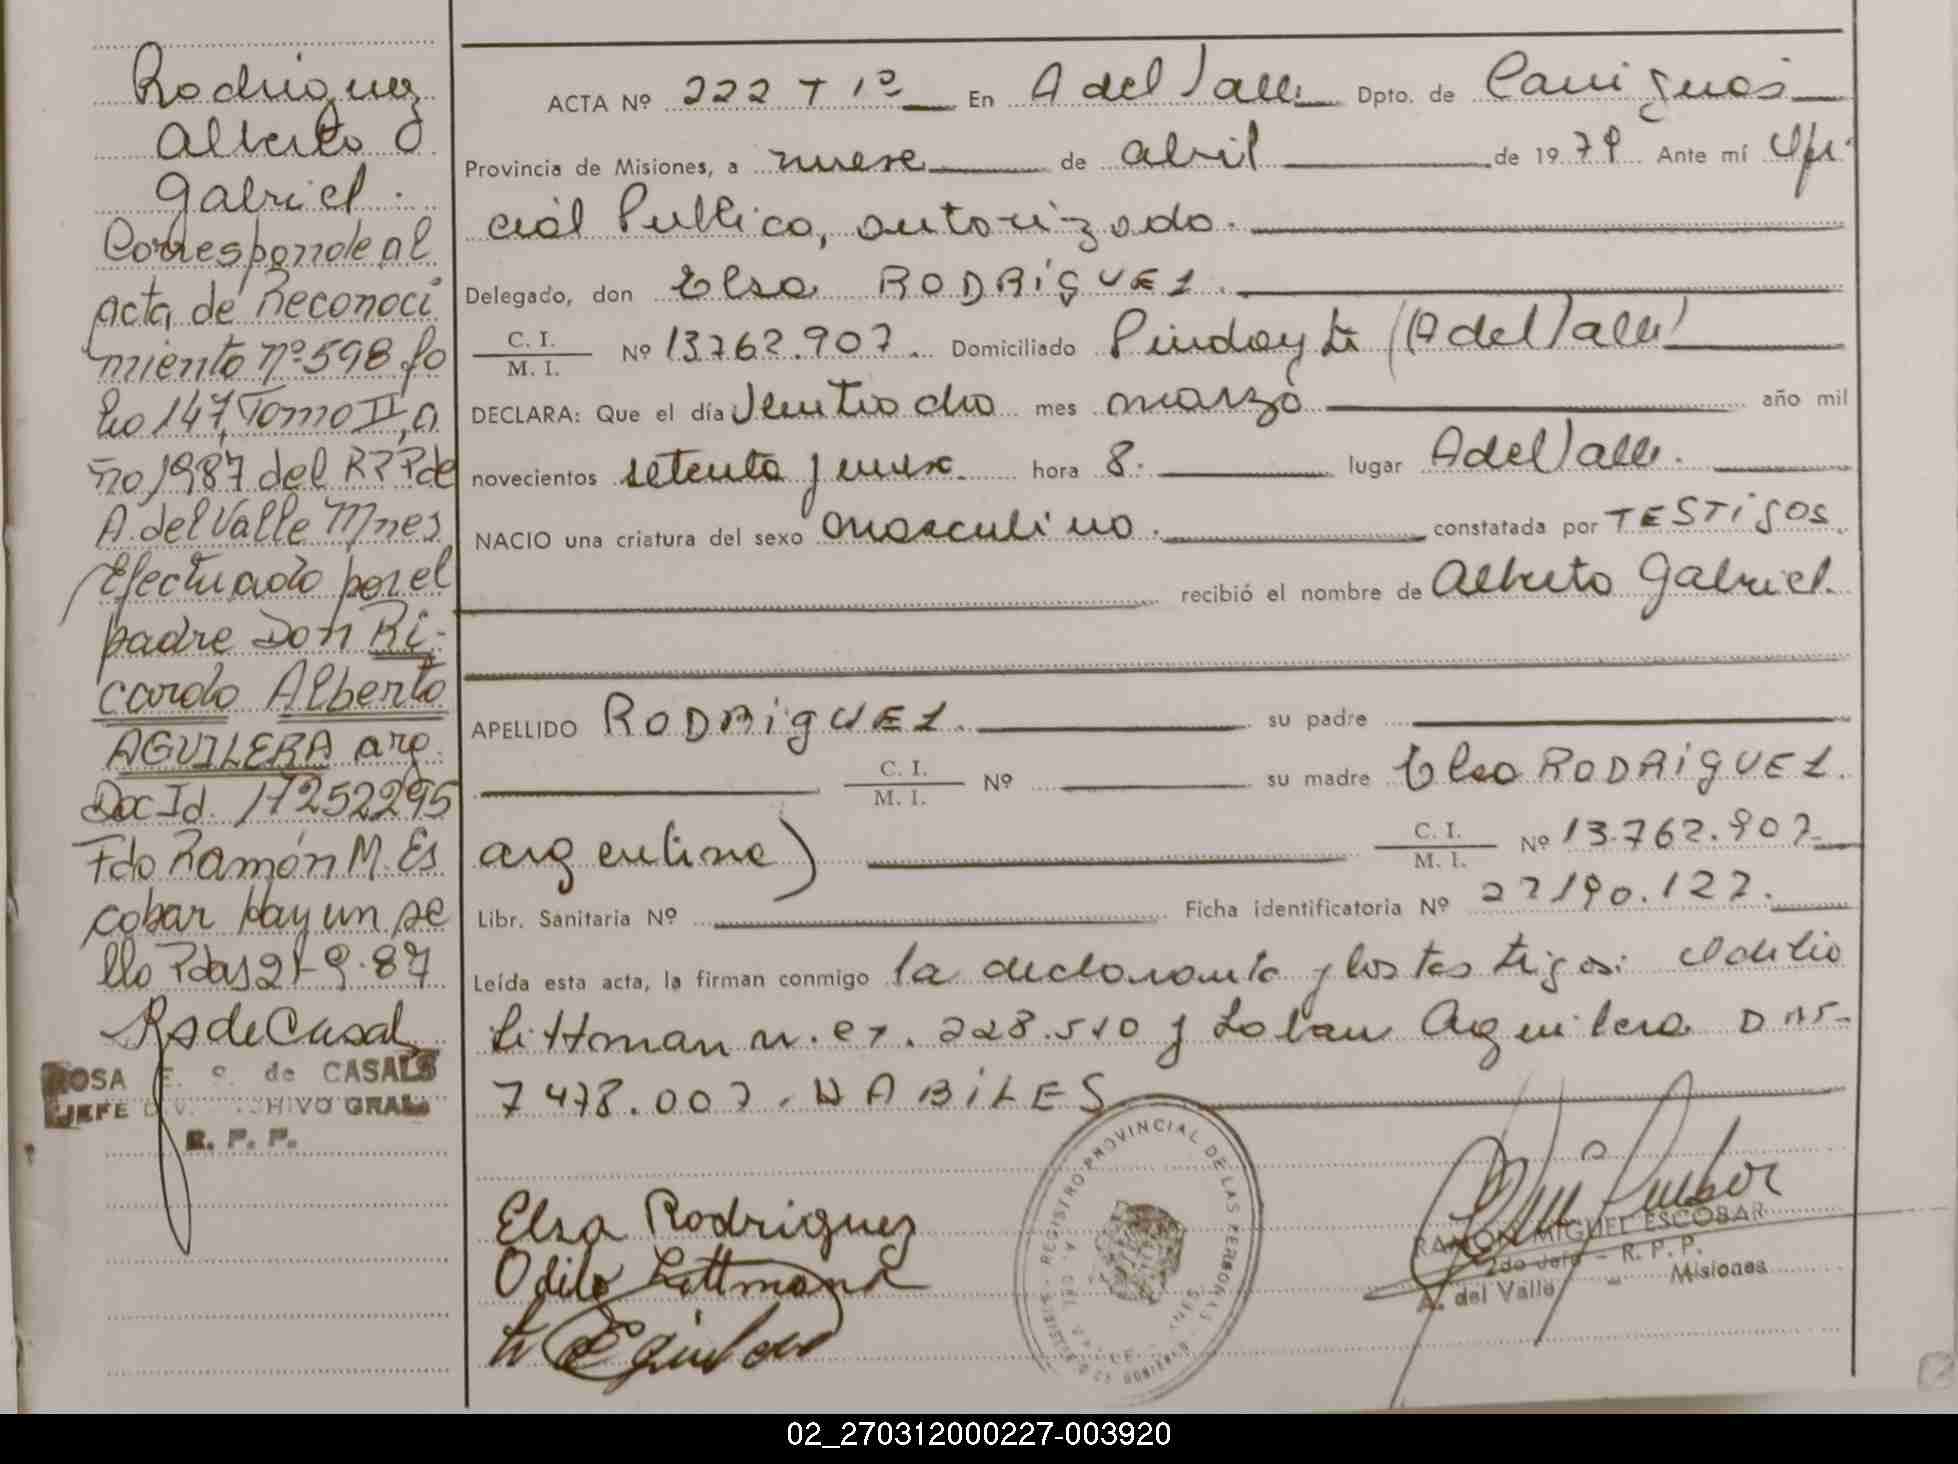 Rodriguez
Alberto
Gabriel.
Corresponde al
acta de Reconoci
miento nº 598 fo
lio 147, Tomo II, a
ño 1987 del RPP de
A. del Valle Mnes
Efectuado por el
padre Don Ri-
cardo Alberto
AGUILERA arg.
Doc Id. 17252295
Fdo Ramón M. Es
cobar Hay un se
llo Pdas 21-9-87
Rs de Casal
ROSA E. S. de CASALS
JEFE DIV. ARCHIVO GRAL.
R. P. P.
ACTA Nº 222 T 1º En A del Valle Dpto. de Cainguás
Provincia de Misiones, a nueve de abril de 1979 Ante mí Ofi-
cial Publico, autorizado.
Delegado, don Elsa RODRÍGUEZ.
C. I. / M. I. Nº 13.762.907. Domiciliado Pindayti (A del Valle)
DECLARA: Que el día Ventiocho mes marzo año mil
novecientos setenta y nueve. hora 8. lugar A del Valle.
NACIO una criatura del sexo masculino. constatada por TESTIGOS
recibió el nombre de Alberto Gabriel.
APELLIDO RODRIGUEZ. su padre
C. I. / M. I. Nº su madre Elsa RODRÍGUEZ.
argentina) C. I. / M. I. Nº 13.762.907
Libr. Sanitaria Nº Ficha identificatoria Nº 27190.127.
Leída esta acta, la firman conmigo la declarante y los testigos: Odilio
Littman n. er. 228.510 y Aguilera DNI-
7478.007. HABILES
Elsa Rodriguez
Odilo Littmann
REGISTRO PROVINCIAL DE LAS PERSONAS
RAMON MIGUEL ESCOBAR
2do Jefe - R. P. P.
A. del Valle - Misiones
02_270312000227-003920